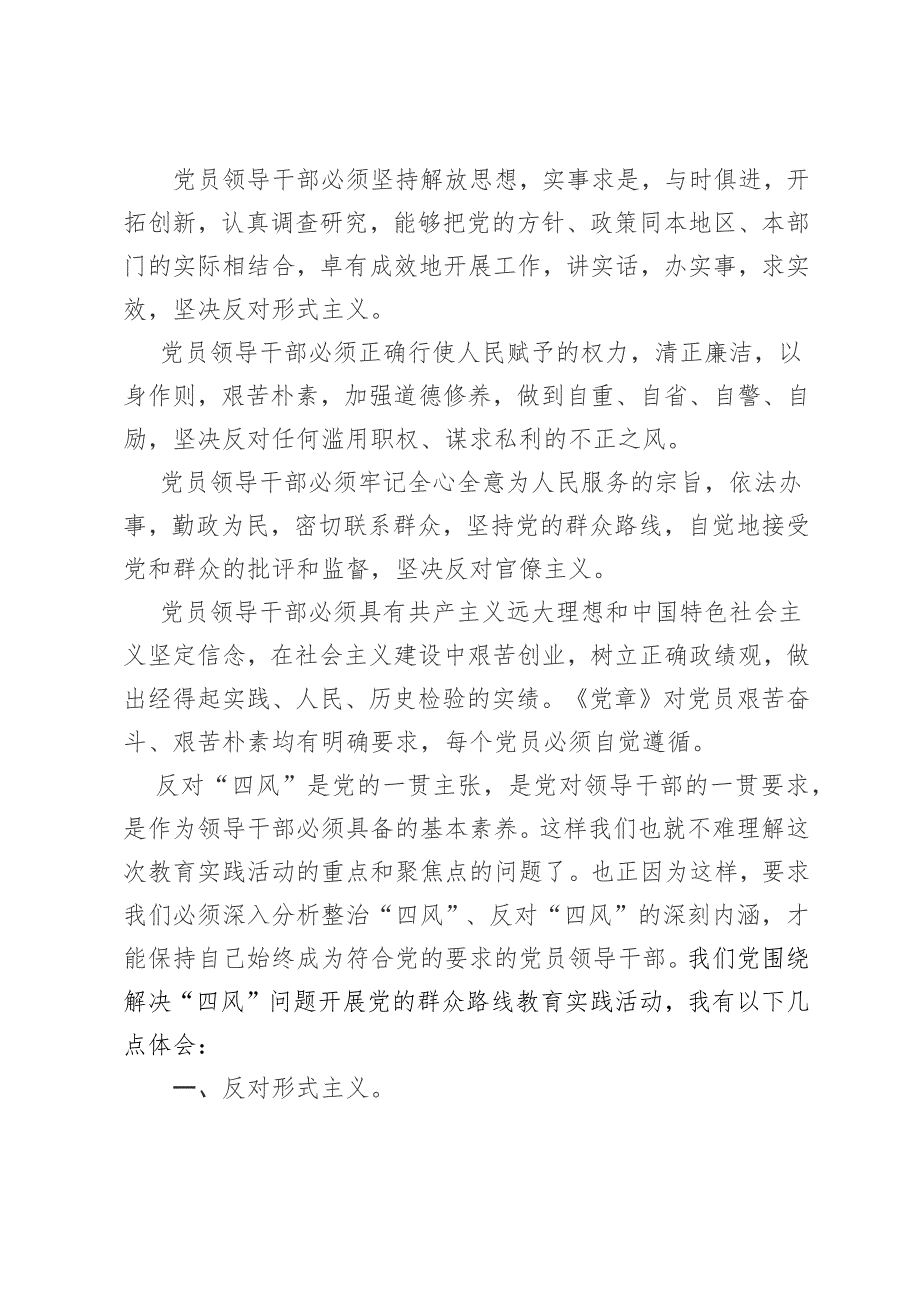 党员领导干部必须坚持解放思想，实事求是，与时俱进，开
拓创新，认真调查研究，能够把党的方针、政策同本地区、本部
门的实际相结合，卓有成效地开展工作，讲实话，办实事，求实
效，坚决反对形式主义。
党员领导干部必须正确行使人民赋予的权力，清正廉洁，以
身作则，艰苦朴素，加强道德修养，做到自重、自省、自警、自
励，坚决反对任何滥用职权、谋求私利的不正之风。
党员领导干部必须牢记全心全意为人民服务的宗旨，依法办
事，勤政为民，密切联系群众，坚持党的群众路线，自觉地接受
党和群众的批评和监督，坚决反对官僚主义。
党员领导干部必须具有共产主义远大理想和中国特色社会主
义坚定信念，在社会主义建设中艰苦创业，树立正确政绩观，做
出经得起实践、人民、历史检验的实绩。《党章》对党员艰苦奋
斗、艰苦朴素均有明确要求，每个党员必须自觉遵循。
反对“四风”是党的一贯主张，是党对领导干部的一贯要求，
是作为领导干部必须具备的基本素养。这样我们也就不难理解这
次教育实践活动的重点和聚焦点的问题了。也正因为这样，要求
我们必须深入分析整治“四风”、反对“四风”的深刻内涵，才
能保持自己始终成为符合党的要求的党员领导干部。我们党围绕
解决“四风”问题开展党的群众路线教育实践活动，我有以下几
点体会：
一、反对形式主义。